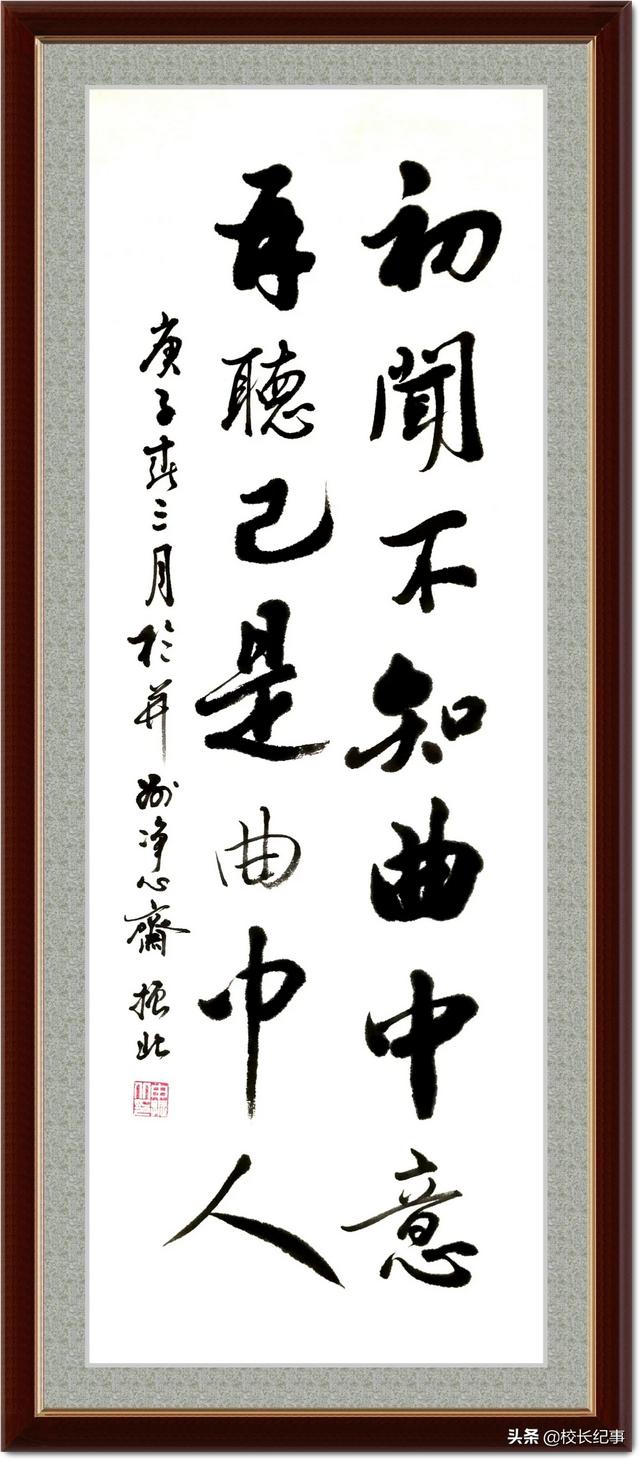 初聞不知曲中意
再聽已是曲中人
庚子春三月於并州净心齋 振北
头条 @校长纪事